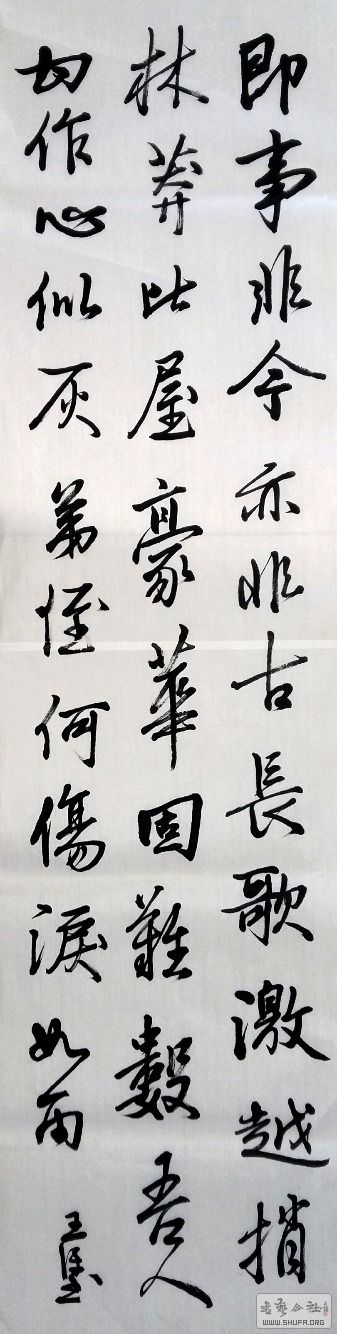 即事非今亦非古長歌激越捎
林莽比屋豪華固難數吾人
甘作心似灰弟侄何傷淚如雨
王
書藝公社
WWW.SHUFA.ORG